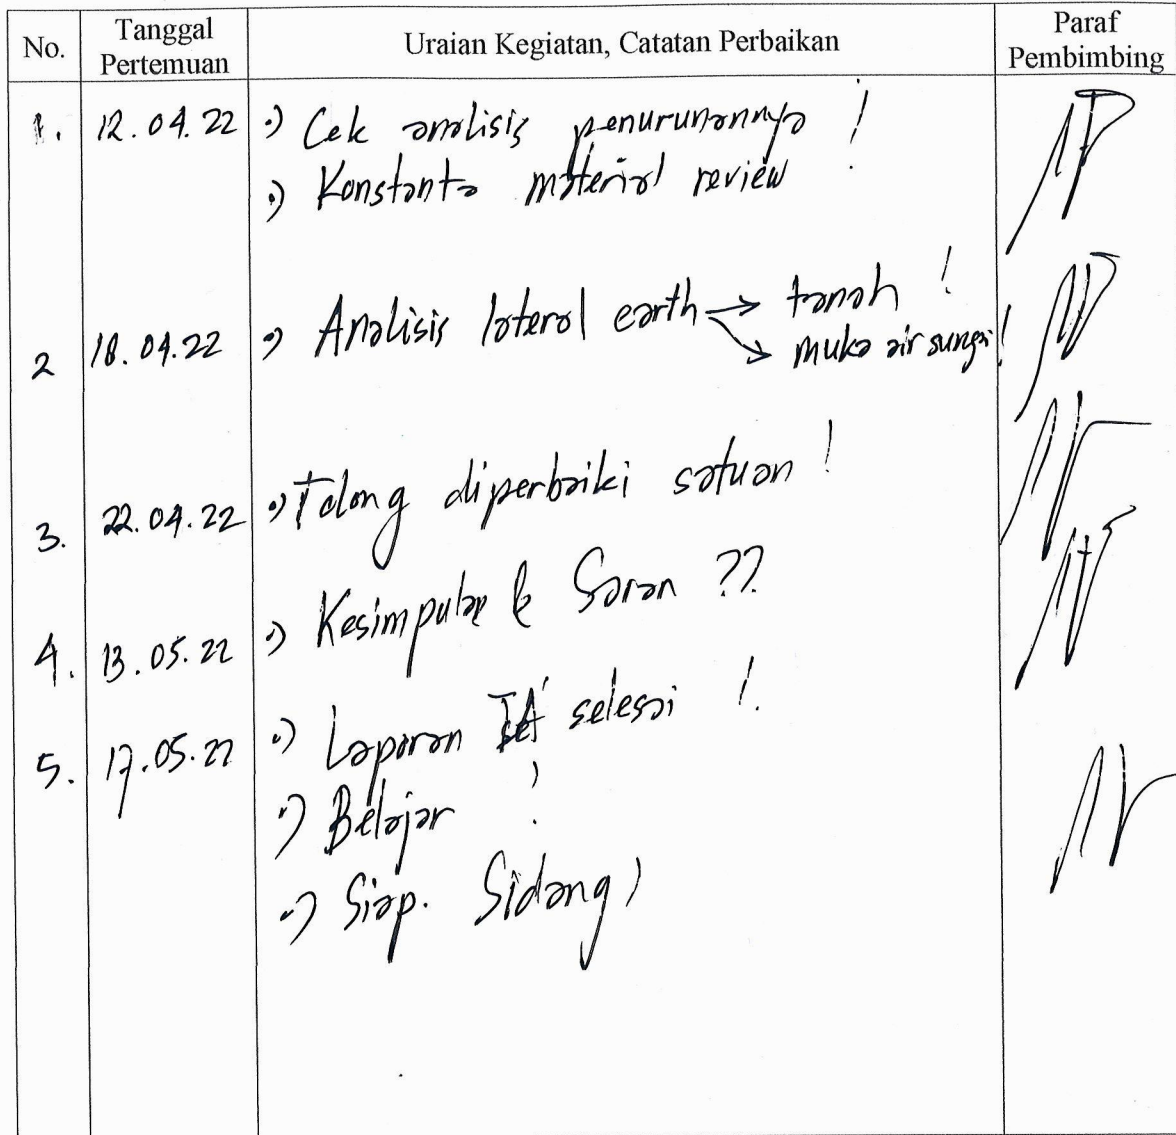 No. Tanggal Pertemuan Uraian Kegiatan, Catatan Perbaikan Paraf Pembimbing
1. 12.04.22 •) Cek analisis penurunannya !
•) Konstanta material review
2 18.04.22 •) Analisis lateral earth → tanah !
→ muka air sungai !
3. 22.04.22 •) Tolong diperbaiki satuan !
4. 13.05.22 •) Kesimpulan & Saran ??
5. 17.05.22 •) Laporan TA selesai !
•) Belajar !
•) Siap. Sidang !